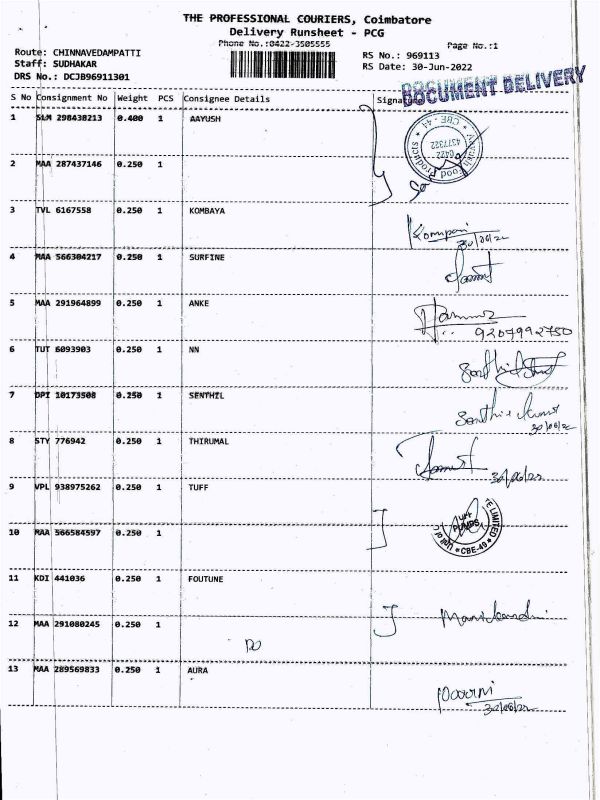 THE PROFESSIONAL COURIERS, Coimbatore
Delivery Runsheet - PCG
Phone No.:0422-3505555
Page No.:1
Route: CHINNAVEDAMPATTI
Staff: SUDHAKAR
DRS No.: DCJB96911301
RS No.: 969113
RS Date: 30-Jun-2022
DOCUMENT DELIVERY
S No Consignment No Weight PCS Consignee Details
1 SLM 298438213 0.400 1 AAYUSH
2 MAA 287437146 0.250 1
3 TVL 6167558 0.250 1 KOMBAYA
30/06/22
4 MAA 566304217 0.250 1 SURFINE
5 MAA 291964899 0.250 1 ANKE
9207992750
6 TUT 6093903 0.250 1 NN
7 DPI 10173508 0.250 1 SENTHIL
30/06/22
8 STY 776942 0.250 1 THIRUMAL
30/06/22
9 VPL 938975262 0.250 1 TUFF
10 MAA 566584597 0.250 1
CBE-49
11 KDI 441036 0.250 1 FOUTUNE
12 MAA 291080245 0.250 1
DO
13 MAA 289569833 0.250 1 AURA
30/06/22